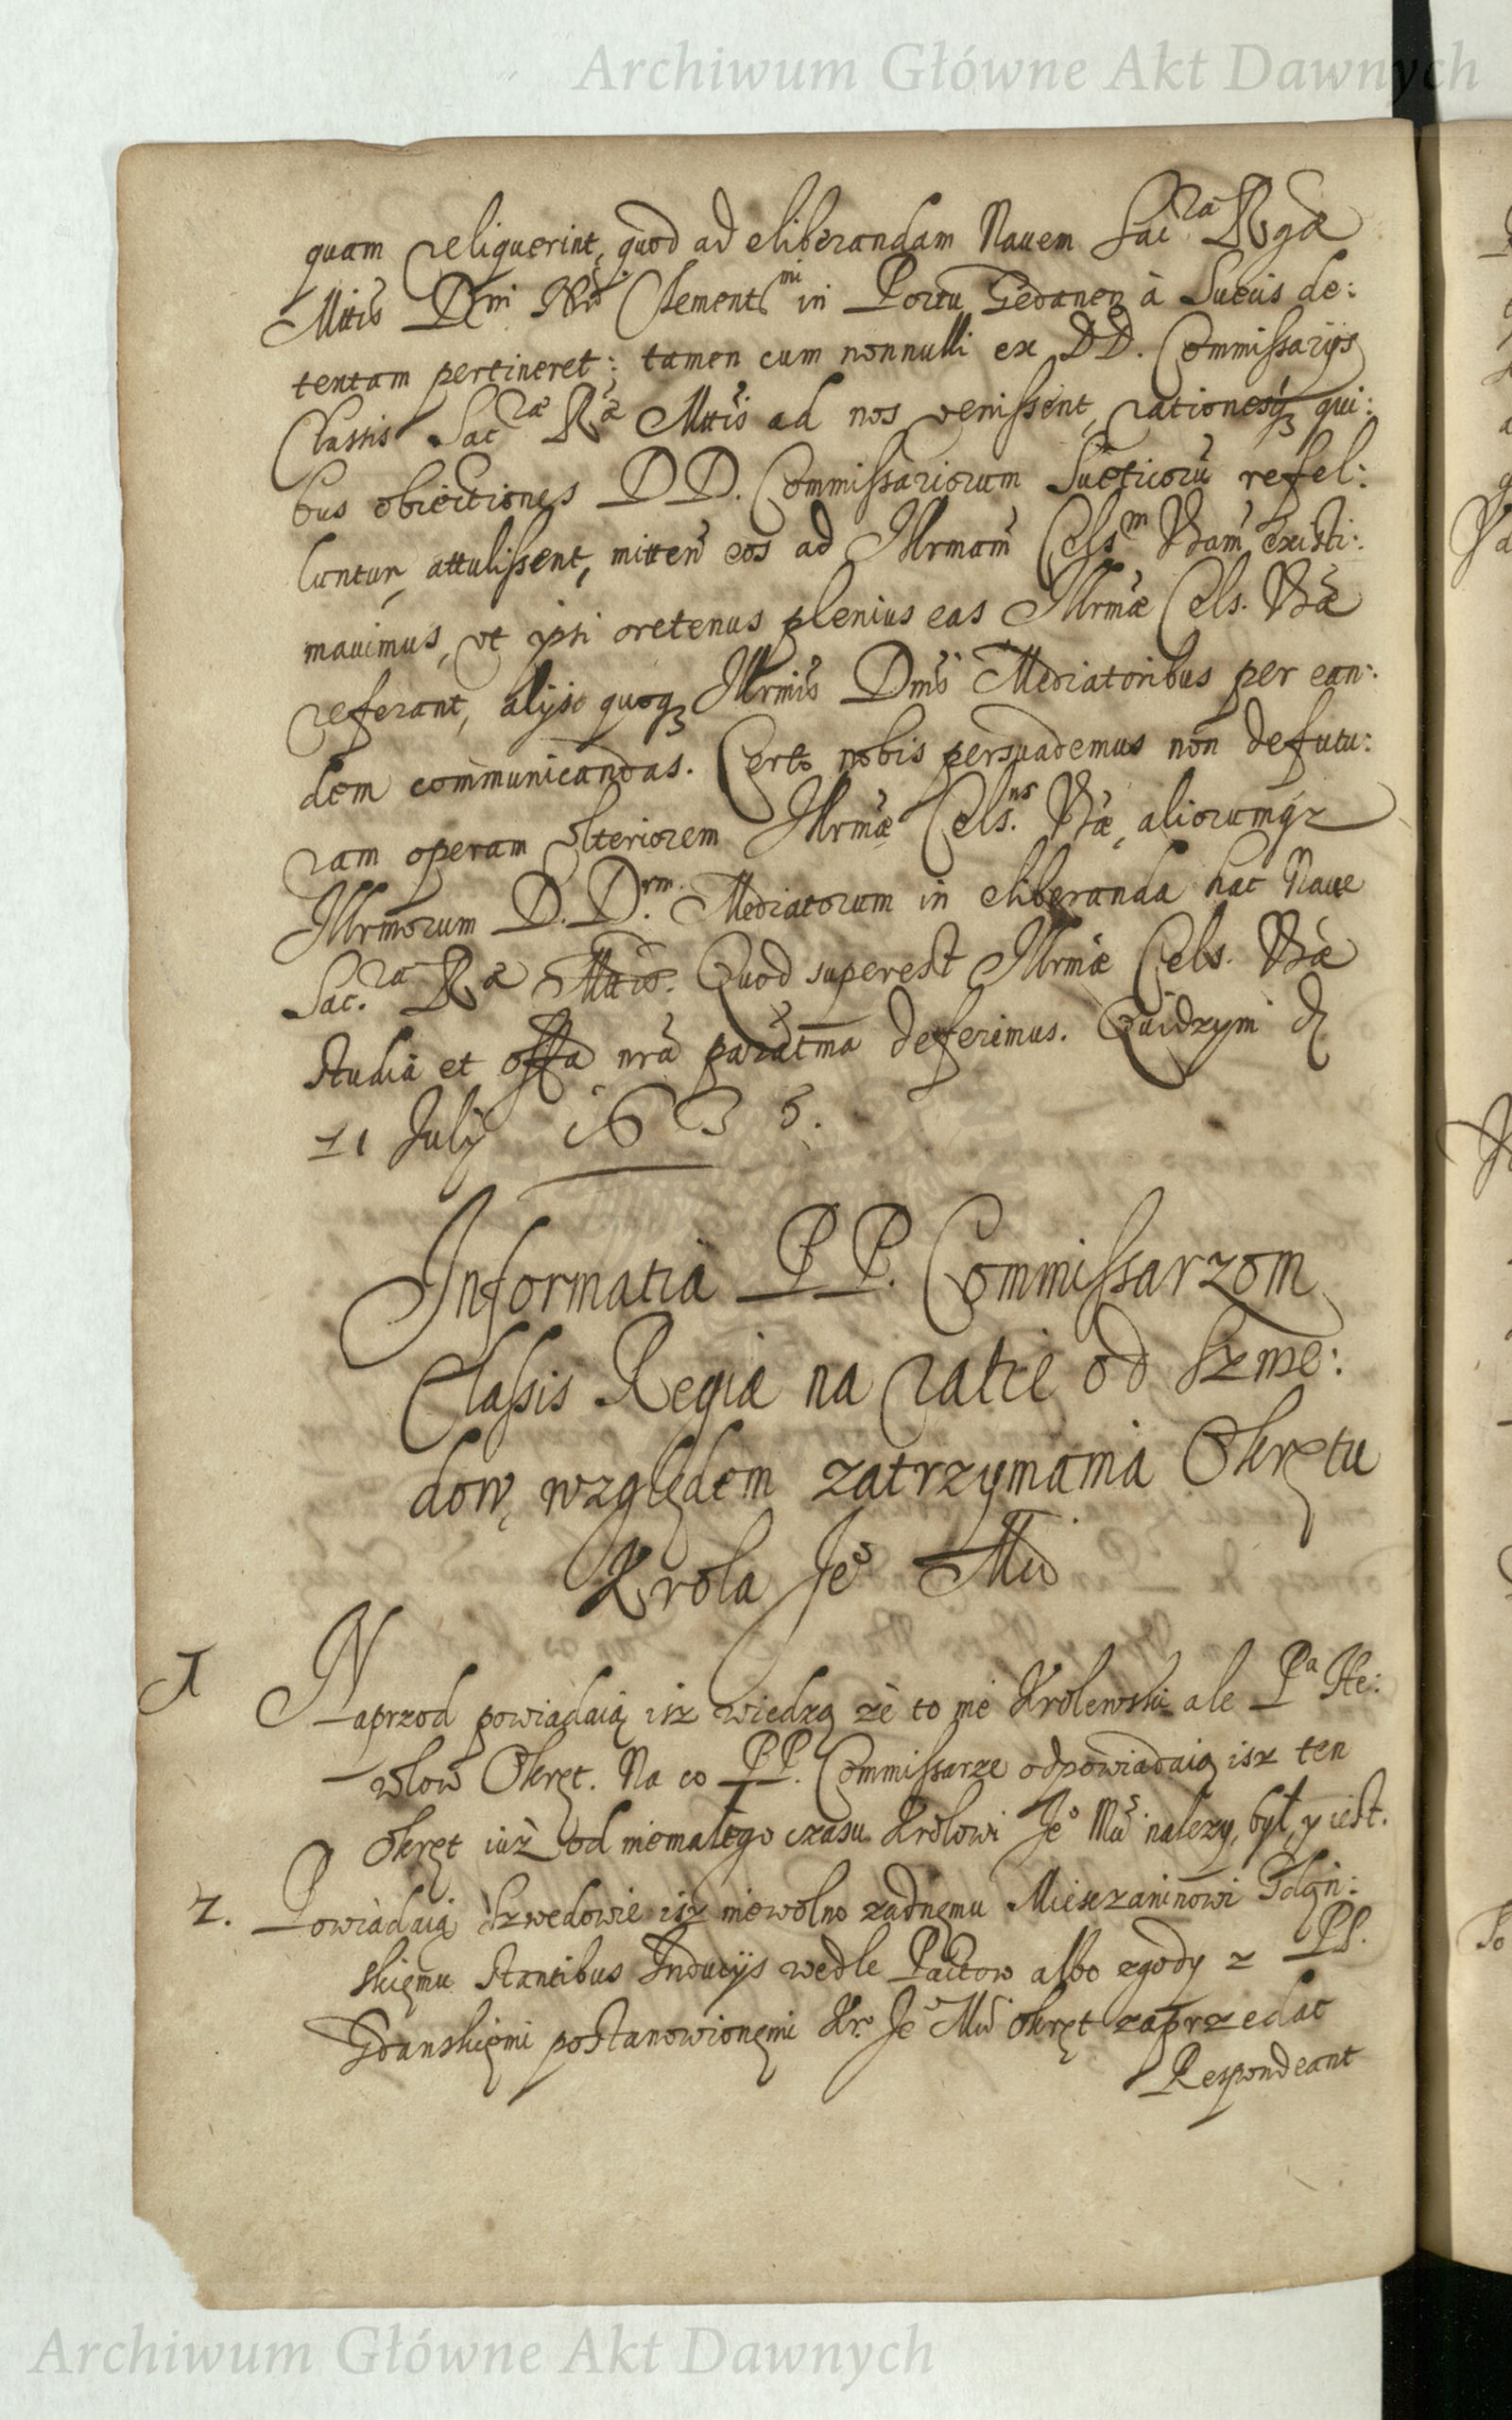 Archiwum Główne Akt Dawnych
quam reliquerint, quod ad eliberandam Nauem Sac.ra Rgæ
Mttis Dni Nri Clementmi in Portu Gedanen à Suecis de:
tentam pertineret: tamen cum nonnulli ex DD. Commissarijs
Classis Sacræ Ræ Mttis ad nos venissent, rationesq3 qui:
bus obiectiones DD. Commissariorum Sueticoru refel:
luntur, attulissent, mitten eos ad Illrmam Celsm Vram existi:
mauimus, vt ipsi oretenus plenius eas Illrmæ Cels. Vræ
referant, alijs quoq3 Illrmis Dmis Mediatoribus per ean:
dem communicandas. Certo nobis persuademus non defutu:
ram operam vlteriorem Illrmæ Cels.nis Vræ, aliorumq3
Illrmorum D.D.rm. Mediatorum in eliberanda hac Naue
Sac.ra Ræ Mttis. Quod superest Illrmæ Cels. Vræ
studia et offa nra paratma deferimus. Quidzym d
21 July 1635.
Informatia PP. Commissarzom
Classis Regiæ na ratie od Szwe:
dow, względem zatrzymania Okrętu
Krola Jeo Mci
1 Naprzod powiadaią isz wiedzą że to nie Krolewski ale Pa He:
wlow Okręt. Na co PP. Commissarze odpowiadaią isz ten
okręt iuż od niemałego czasu Krolowi Jeo Mci nalezy, był, y iest.
2. Powiadaią Szwedowie isz niewolno zadnęmu Miesczaninowi Gdan:
skięmu stantibus Inducijs wedle Pactow albo zgody z PP.
Gdanskięmi postanowionęmi Kr. Jeo Mci okręt zaprzedac
Respondeant
Archiwum Główne Akt Dawnych